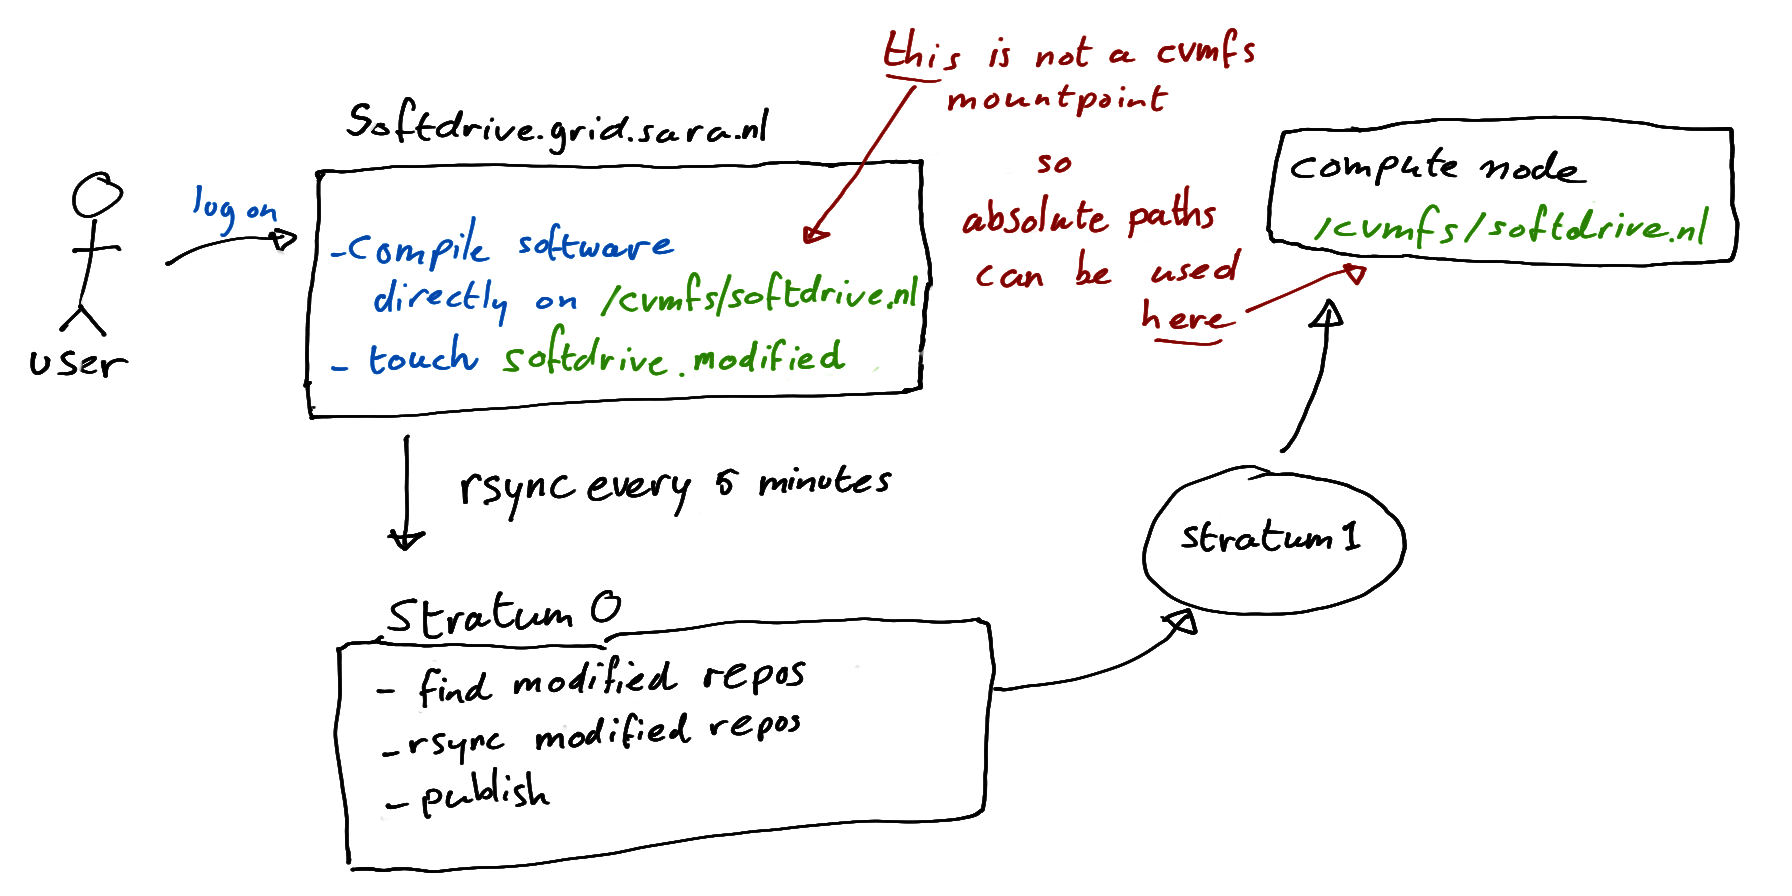 this is not a cvmfs
mountpoint
so
absolute paths
can be used
here
Softdrive.grid.sara.nl
user
log on
- compile software
directly on /cvmfs/softdrive.nl
- touch softdrive.modified
compute node
/cvmfs/softdrive.nl
rsync every 5 minutes
Stratum 0
- find modified repos
- rsync modified repos
- publish
stratum 1